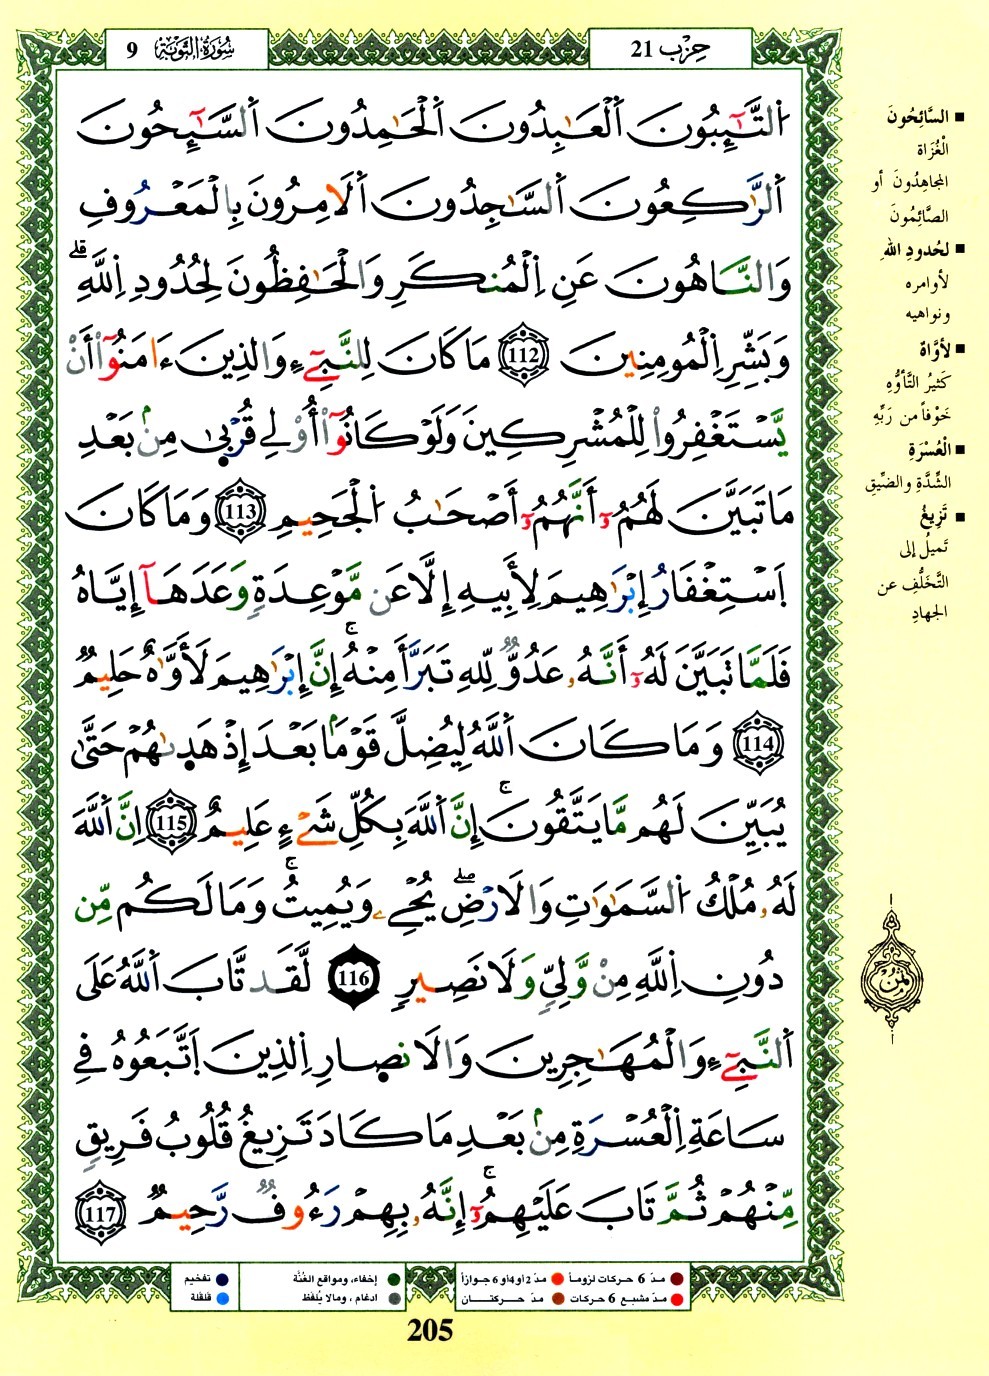 سُورَةُ التَّوْبَة 9
حِزْب 21
اَ۬لتَّٰٓئِبُونَ اَ۬لْعَٰبِدُونَ اَ۬لْحَٰمِدُونَ اَ۬لسَّٰٓئِحُونَ
اَ۬لرَّٰكِعُونَ اَ۬لسَّٰجِدُونَ اَ۬لَامِرُونَ بِالْمَعْرُوفِ
وَالنَّاهُونَ عَنِ اِ۬لْمُنكَرِ وَالْحَٰفِظُونَ لِحُدُودِ اِ۬للَّهِۖ
وَبَشِّرِ اِ۬لْمُومِنِينَ 112 مَا كَانَ لِلنَّبِےٓءِ وَالذِينَ ءَامَنُوٓاْ أَنْ
يَّسْتَغْفِرُواْ لِلْمُشْرِكِينَ وَلَوْ كَانُوٓاْ أُوْلِے قُرْبٜىٰ مِنۢ بَعْدِ
مَا تَبَيَّنَ لَهُمُۥٓ أَنَّهُمُۥٓ أَصْحَٰبُ اُ۬لْجَحِيمِ 113 وَمَا كَانَ
اَ۪سْتِغْفَارُ إِبْرَٰهِيمَ لِأَبِيهِ إِلَّا عَن مَّوْعِدَةٖ وَعَدَهَآ إِيَّاهُ
فَلَمَّا تَبَيَّنَ لَهُۥٓ أَنَّهُۥ عَدُوّٞ لِّلهِ تَبَرَّأَ مِنْهُۚ إِنَّ إِبْرَٰهِيمَ لَأَوَّٰهٌ حَلِيمٞ
114 وَمَا كَانَ اَ۬للَّهُ لِيُضِلَّ قَوْماَۢ بَعْدَ إِذْ هَدٜىٰهُمْ حَتَّىٰ
يُبَيِّنَ لَهُم مَّا يَتَّقُونَۚ إِنَّ اَ۬للَّهَ بِكُلِّ شَےْءٍ عَلِيمٌ 115 اِنَّ اَ۬للَّهَ
لَهُۥ مُلْكُ اُ۬لسَّمَٰوَٰتِ وَالَارْضِۖ يُحْيِۦ وَيُمِيتُۚ وَمَا لَكُم مِّن
دُونِ اِ۬للَّهِ مِنْ وَّلِيّٖ وَلَا نَصِيرٖ 116 لَّقَد تَّابَ اَ۬للَّهُ عَلَى
اَ۬لنَّبِےٓءِ وَالْمُهَٰجِرِينَ وَالَانصٜارِ اِ۬لذِينَ اَ۪تَّبَعُوهُ فِے
سَاعَةِ اِ۬لْعُسْرَةِ مِنۢ بَعْدِ مَا كَادَ تَزِيغُ قُلُوبُ فَرِيقٖ
مِّنْهُمْ ثُمَّ تَابَ عَلَيْهِمُۥٓۚ إِنَّهُۥ بِهِمْ رَءُوفٞ رَّحِيمٞ 117
■ السَّائِحُونَ
الْغُزَاة
المجاهِدُونَ أو
الصَّائِمُونَ
■ لحُدودِ اللهِ
لأوامره
ونواهيه
■ لأَوَّاهٌ
كَثيرُ التَّأوُّهِ
خَوْفاً من رَبِّهِ
■ الْعُسْرَةِ
الشِّدَّةِ والضّيقِ
■ تَزِيغُ
تَميلُ إلى
التَّخَلُّفِ عن
الجهادِ
ثمن
مدّ 6 حركات لزوماً
مدّ 2 أو 4 أو 6 جوازاً
إخفاء، ومواقع الغُنَّة
تفخيم
مدّ مشبع 6 حركات
مد حركتان
ادغام، ومالا يُلفظ
قلقلة
205